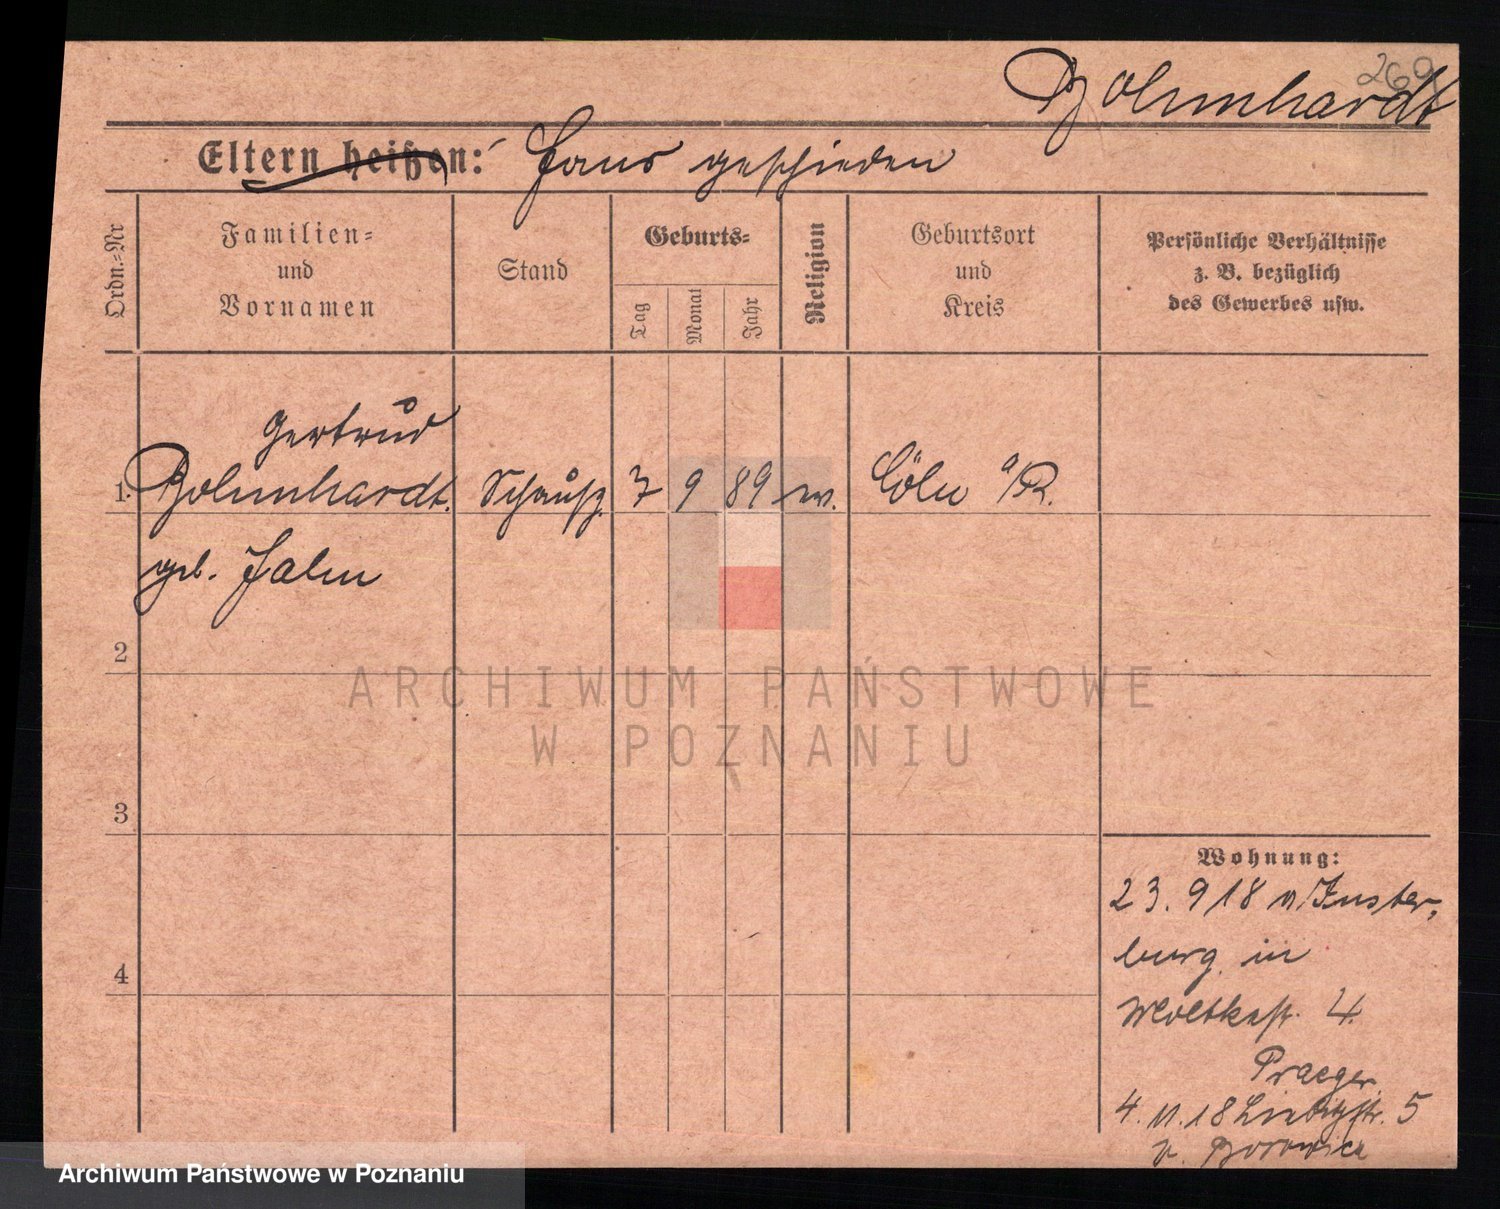 269
Bohnhardt
Eltern heißen: Frau geschieden
Ordn.-Nr
Familien-
und
Vornamen
Stand
Geburts-
Tag
Monat
Jahr
Religion
Geburtsort
und
Kreis
Persönliche Verhältnisse
z. B. bezüglich
des Gewerbes usw.
Gertrud
1. Bohnhardt. Schausp. 7 9 89 ev. Cöln a/R.
geb. Jahn
2
3
4
Wohnung:
23. 9 18 v. Inster-
burg in
Moltkestr. 4.
Praeger
4. 11. 18 Liebigstr. 5
b. Borowicz
ARCHIWUM PAŃSTWOWE
W POZNANIU
Archiwum Państwowe w Poznaniu